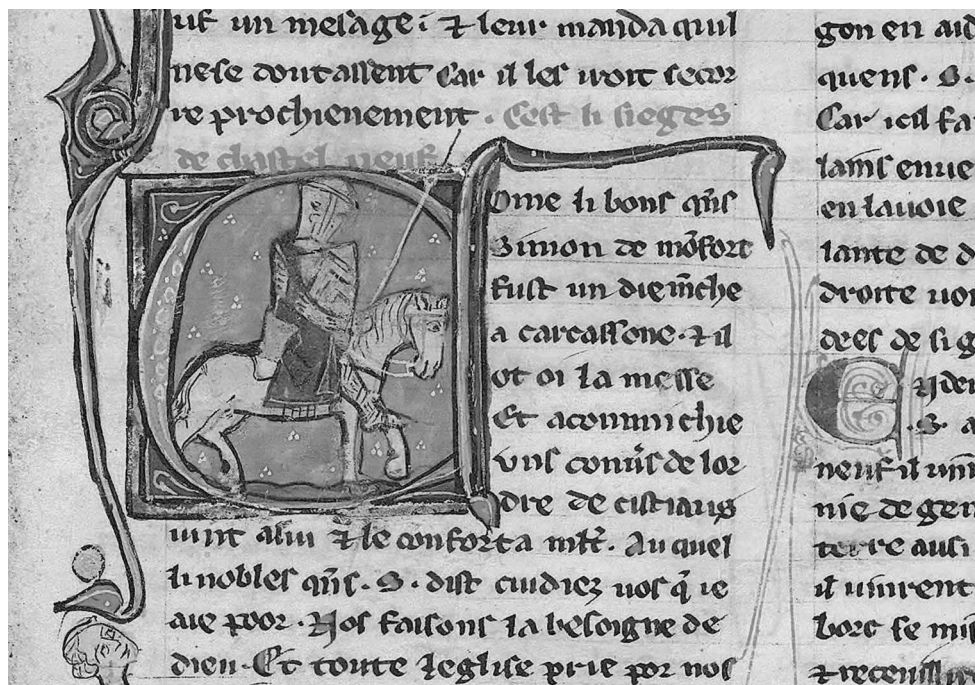 un mesage · ⁊ leur manda quil
ne se doutassent Car il les iroit secor
re prochienement · Cest li sieges
de chastel neuf
Ome li bons q̄ns
Simon de mōfort
fust un diem̄che
a carcassone · ⁊ il
ot oi la messe
Et acommichie
vns conuˢ de lor
dre de cistiaus
uint a lui ⁊ le conforta ml̄t · Au quel
li nobles q̄ns · S · dist cuidiez uos q̄ ie
aie poor · Nos faisons la besoigne de
dieu · Et toute leglise prie por nos
gon en aid
quens · S ·
Car icil fa
en la uoie
lante de d
droite uo
dees de si g
· S · a
neuf il
nie de gen
terre ausi
il uinrent
borc se mi